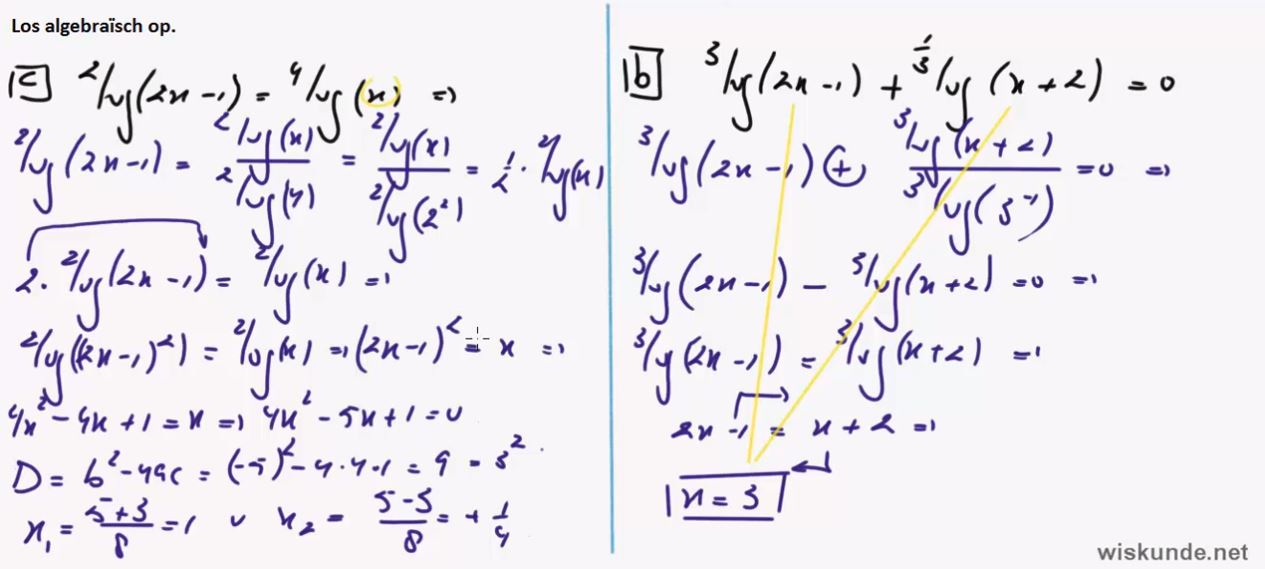 Los algebraïsch op.
c) ²log(2x-1) = ⁴log(x) ⇒
²log(2x-1) = ²log(x)/²log(4) = ²log(x)/²log(2²) = 1/2 · ²log(x)
2 · ²log(2x-1) = ²log(x) ⇒
²log((2x-1)²) = ²log(x) ⇒ (2x-1)² = x ⇒
4x² - 4x + 1 = x ⇒ 4x² - 5x + 1 = 0
D = b² - 4ac = (-5)² - 4·4·1 = 9 = 3²
x₁ = (5+3)/8 = 1 ∨ x₂ = (5-3)/8 = + 1/4
b) ³log(2x-1) + ^(1/3)log(x+2) = 0
³log(2x-1) + ³log(x+2)/³log(3⁻¹) = 0 ⇒
³log(2x-1) - ³log(x+2) = 0 ⇒
³log(2x-1) = ³log(x+2) ⇒
2x-1 = x+2 ⇒
x = 3
wiskunde.net